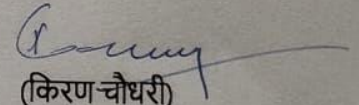 (किरण चौधरी)